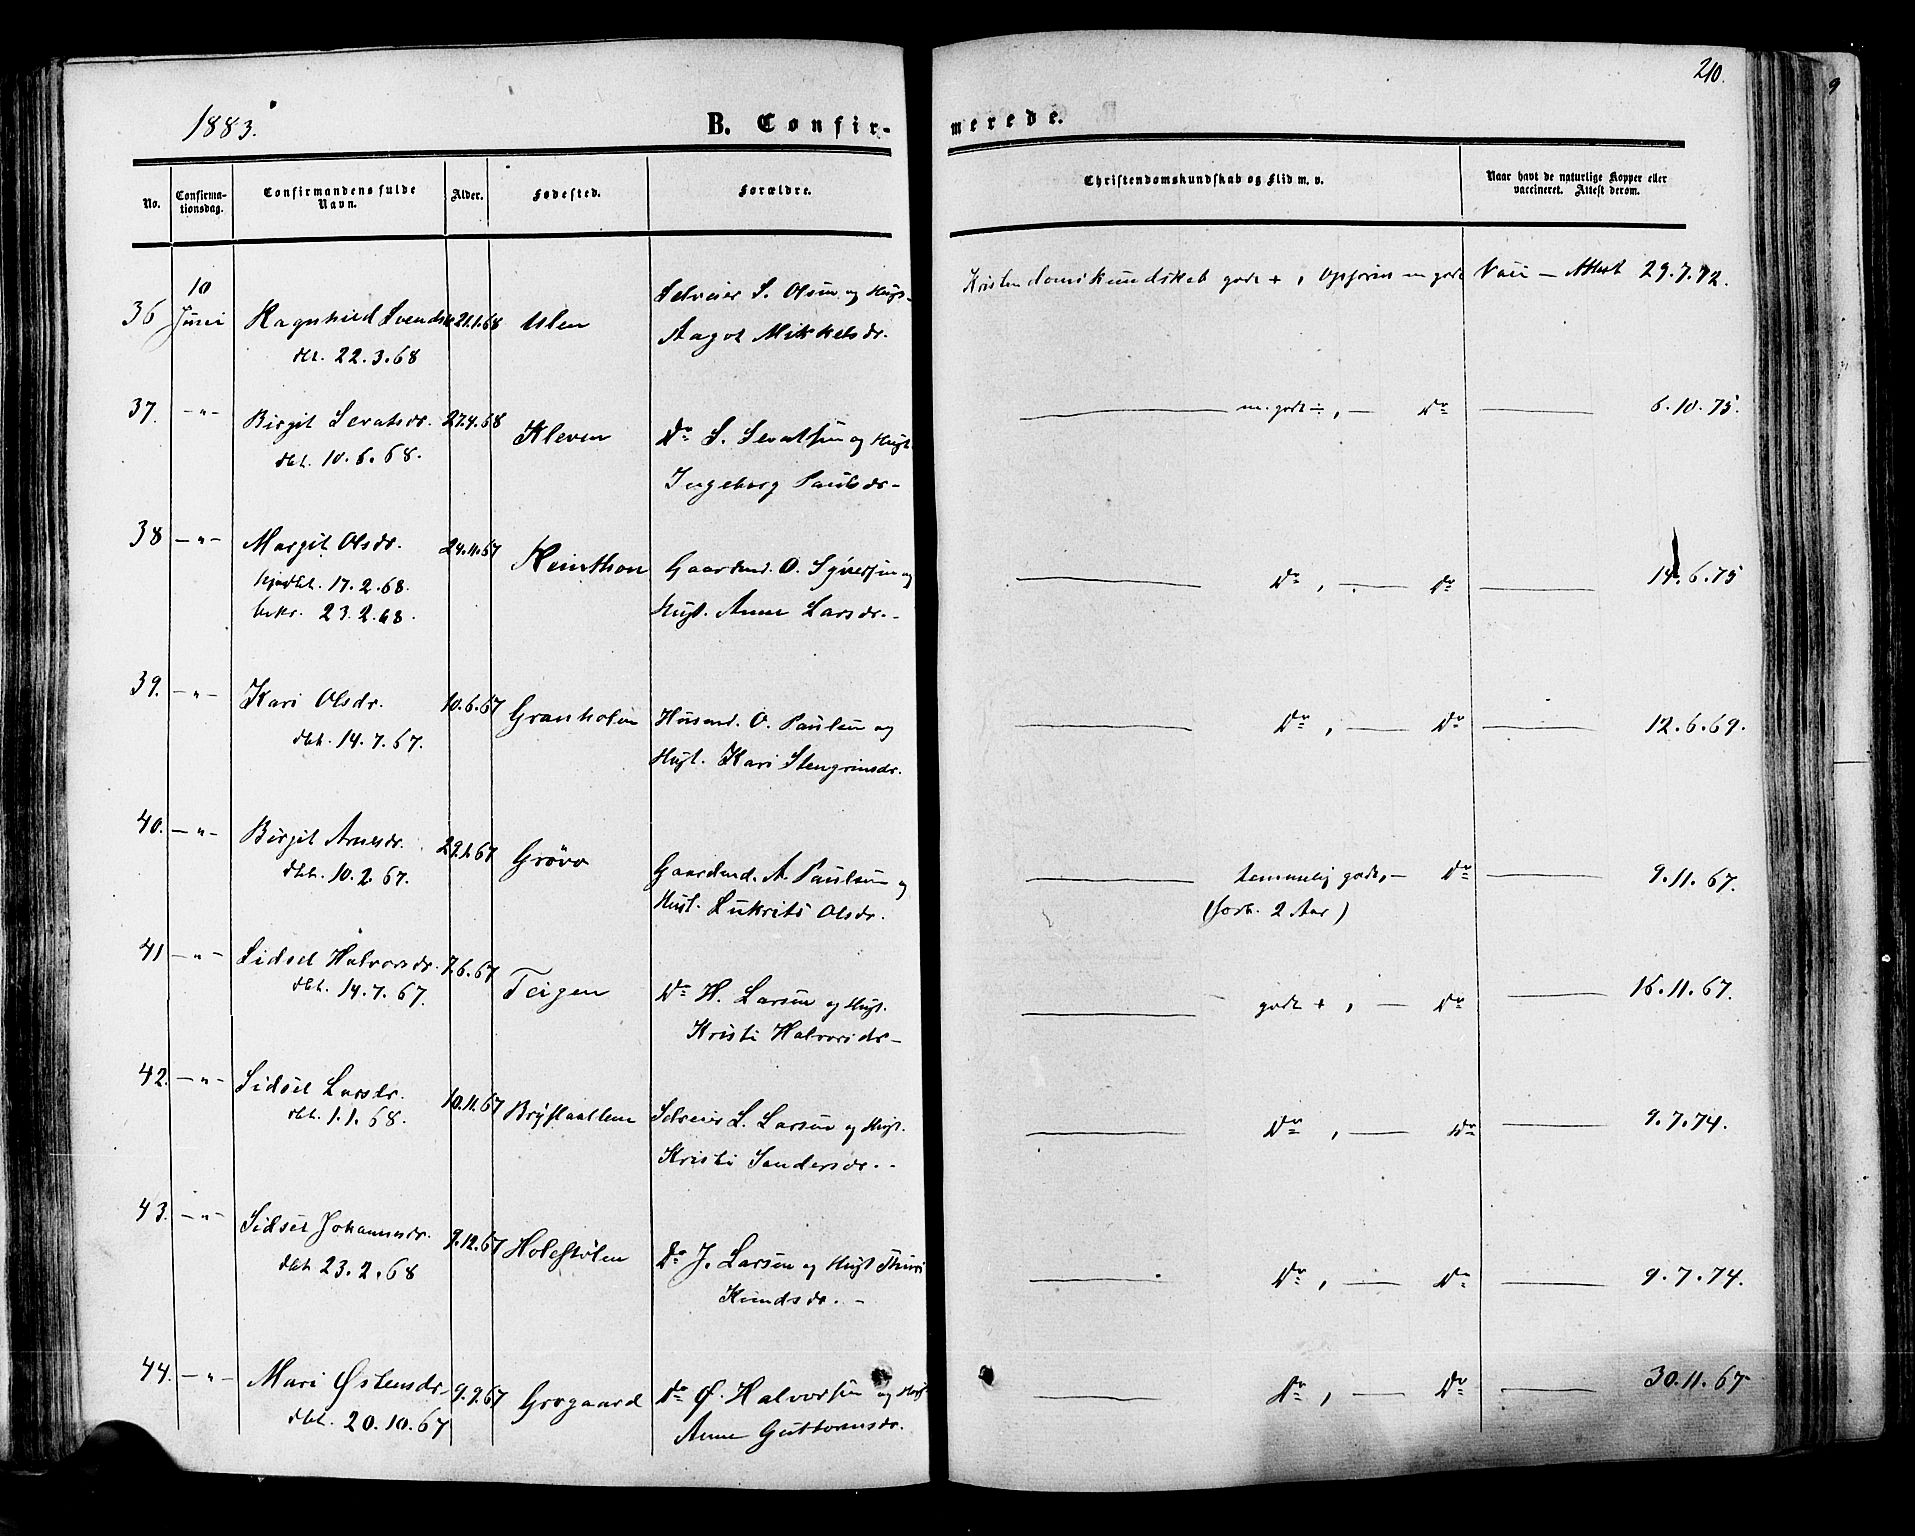 210.
1883.
B. Confirmerede.
No.
Confirmationsdag.
Confirmandens fulde Navn.
Alder.
Fødested.
Forældre.
Christendomskundskab og Flid m. v.
Naar havt de naturlige Kopper eller vaccineret. Attest derom.
36 10 Juni Ragnhild Svends 21.1.68 Ulen Selveier S. Olsen og Hugt
dbt. 22.3.68 Aagot Mikkelsdr.
Kristendomskundskab godt +, Opførsel m godt Vacc — Attest 29.7.72.
37. -"- Birgit Sevatsdr. 27.4.68 Kleven Do S. Sevatsen og Hugt.
dbt. 10.6.68. Ingeborg Paulsdr-
m. godt ÷, — Do 6.10.75.
38 -"- Margit Olsdr. 24.11.67 Gaardmd. O. Syversen og
hjmdbt. 17.2.68. Hugt. Anne Larsdr.-
bekr. 23.2.68.
Do, — Do 14.6.75
39. -"- Kari Olsdr. 10.6.67 Granholen Husmd. O. Paulsen og
dbt. 14.7.67. Hugt. Kari Stengrimsdr.
Do, — Do 12.6.69.
40. -"- Birgit Arnesdr. 29.1.67 Grøvo Gaardmd. A. Paulsen og
dbt. 10.2.67. Hugt. Lukrits Olsdr.
temmelig godt, — Do 9.11.67.
(forb. 2 Aar)
41 -"- Sidsel Halvorsdr. 7.6.67 Teigen Do H. Larsen og Hugt.
dbt. 14.7.67. Kristi Halvorsdr-
godt +, — Do 16.11.67.
42. -"- Sidsel Larsdr. 10.11.67 Selveier L. Larsen og Hugt.
dbt. 1.1.68. Kristi Sandersdr.-
Do, — Do 9.7.74.
43. -"- Sidsel Johannesdr. 9.12.67 Holestølen Do J. Larsen og Hugt Thuri
dbt 23.2.68 Knudsdr. -
Do, — Do 9.7.74.
44. -"- Mari Østensdr- 9.9.67 Grogaard Do Ø. Halvorsen og Hugt
dbt. 20.10.67 Anne Guttormsdr.
Do, — Do 30.11.67